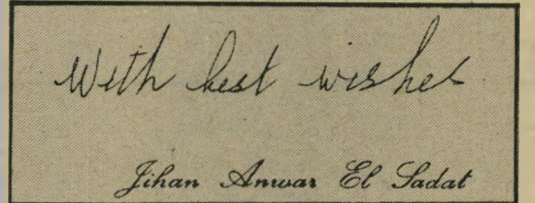 With best wishes
Jihan Anwar El Sadat